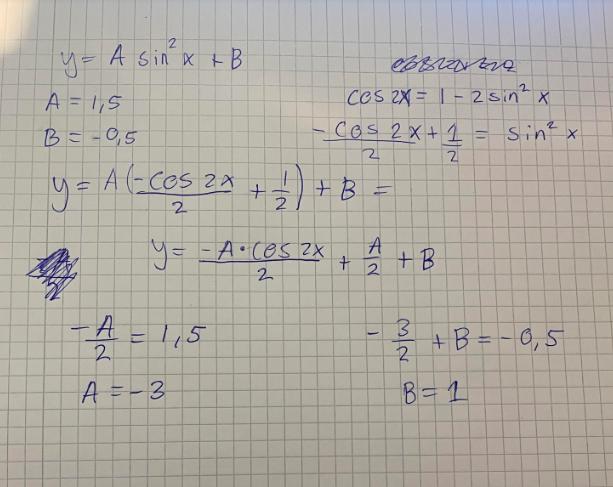 y = A sin² x + B
A = 1,5
B = -0,5
cos 2x = 1 - 2 sin² x
-cos 2x/2 + 1/2 = sin² x
y = A(-cos 2x/2 + 1/2) + B =
y = -A·cos 2x/2 + A/2 + B
-A/2 = 1,5
A = -3
-3/2 + B = -0,5
B = 1